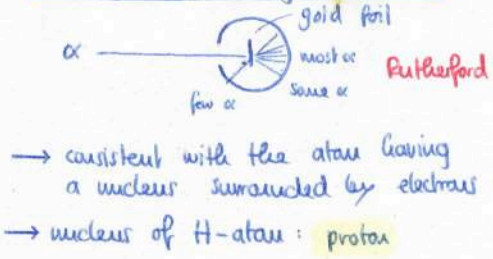 gold foil
α
most α
Rutherford
some α
few α
→ consistent with the atom having
a nucleus surrounded by electrons
→ nucleus of H-atom: proton